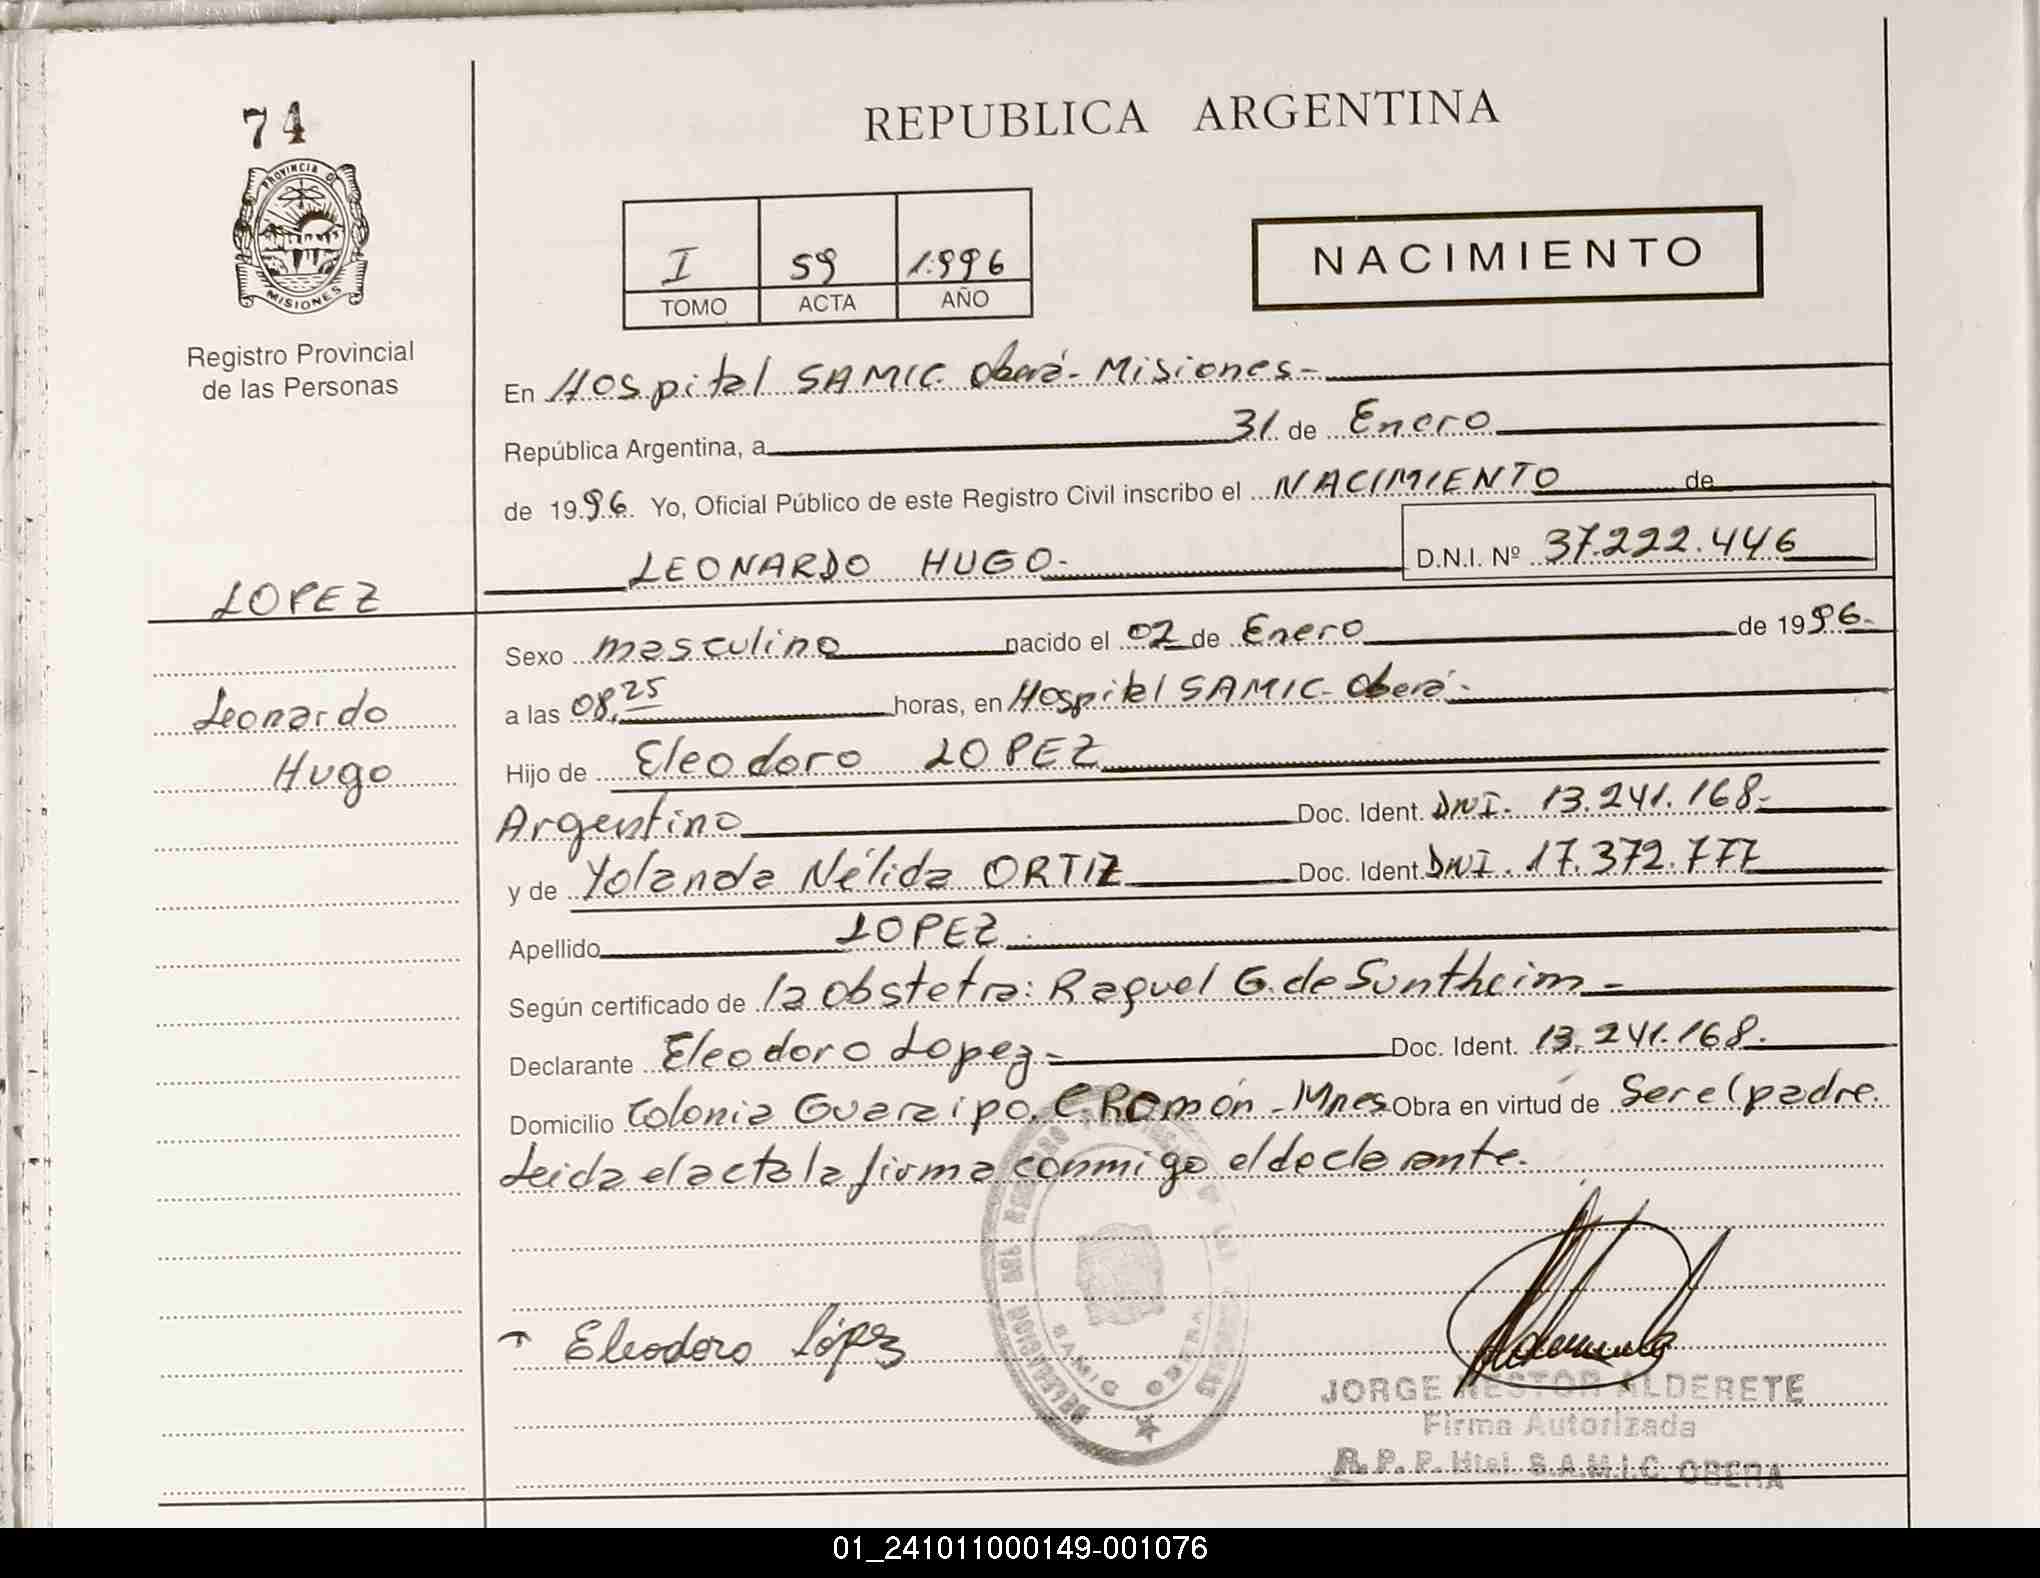 74
PROVINCIA D
MISIONES
Registro Provincial
de las Personas
REPUBLICA ARGENTINA
I 59 1.996
TOMO ACTA AÑO
NACIMIENTO
En Hospital SAMIC. Oberá - Misiones -
República Argentina, a 31 de Enero
de 1996. Yo, Oficial Público de este Registro Civil inscribo el NACIMIENTO de
LEONARDO HUGO - D.N.I. Nº 37.222.446
LOPEZ
Leonardo
Hugo
Sexo masculino nacido el 02 de Enero de 1996.
a las 08,25 horas, en Hospital SAMIC - Oberá -
Hijo de Eleodoro LOPEZ
Argentino Doc. Ident. DNI. 13.241.168 -
y de Yolanda Nélida ORTIZ Doc. Ident. DNI. 17.372.777
Apellido LOPEZ.
Según certificado de la obstetra: Raquel G. de Suntheim -
Declarante Eleodoro Lopez - Doc. Ident. 13.241.168.
Domicilio Colonia Guaraipo. C. Ramón - Mnes Obra en virtud de Ser el padre.
Leida el acta la firma conmigo el declarante.
Eleodoro López
DELEGACION DEL REGISTRO
SAMIC OBERA
JORGE NESTOR ALDERETE
Firma Autorizada
R. P. P. Htal. S.A.M.I.C. OBERA
01_241011000149-001076